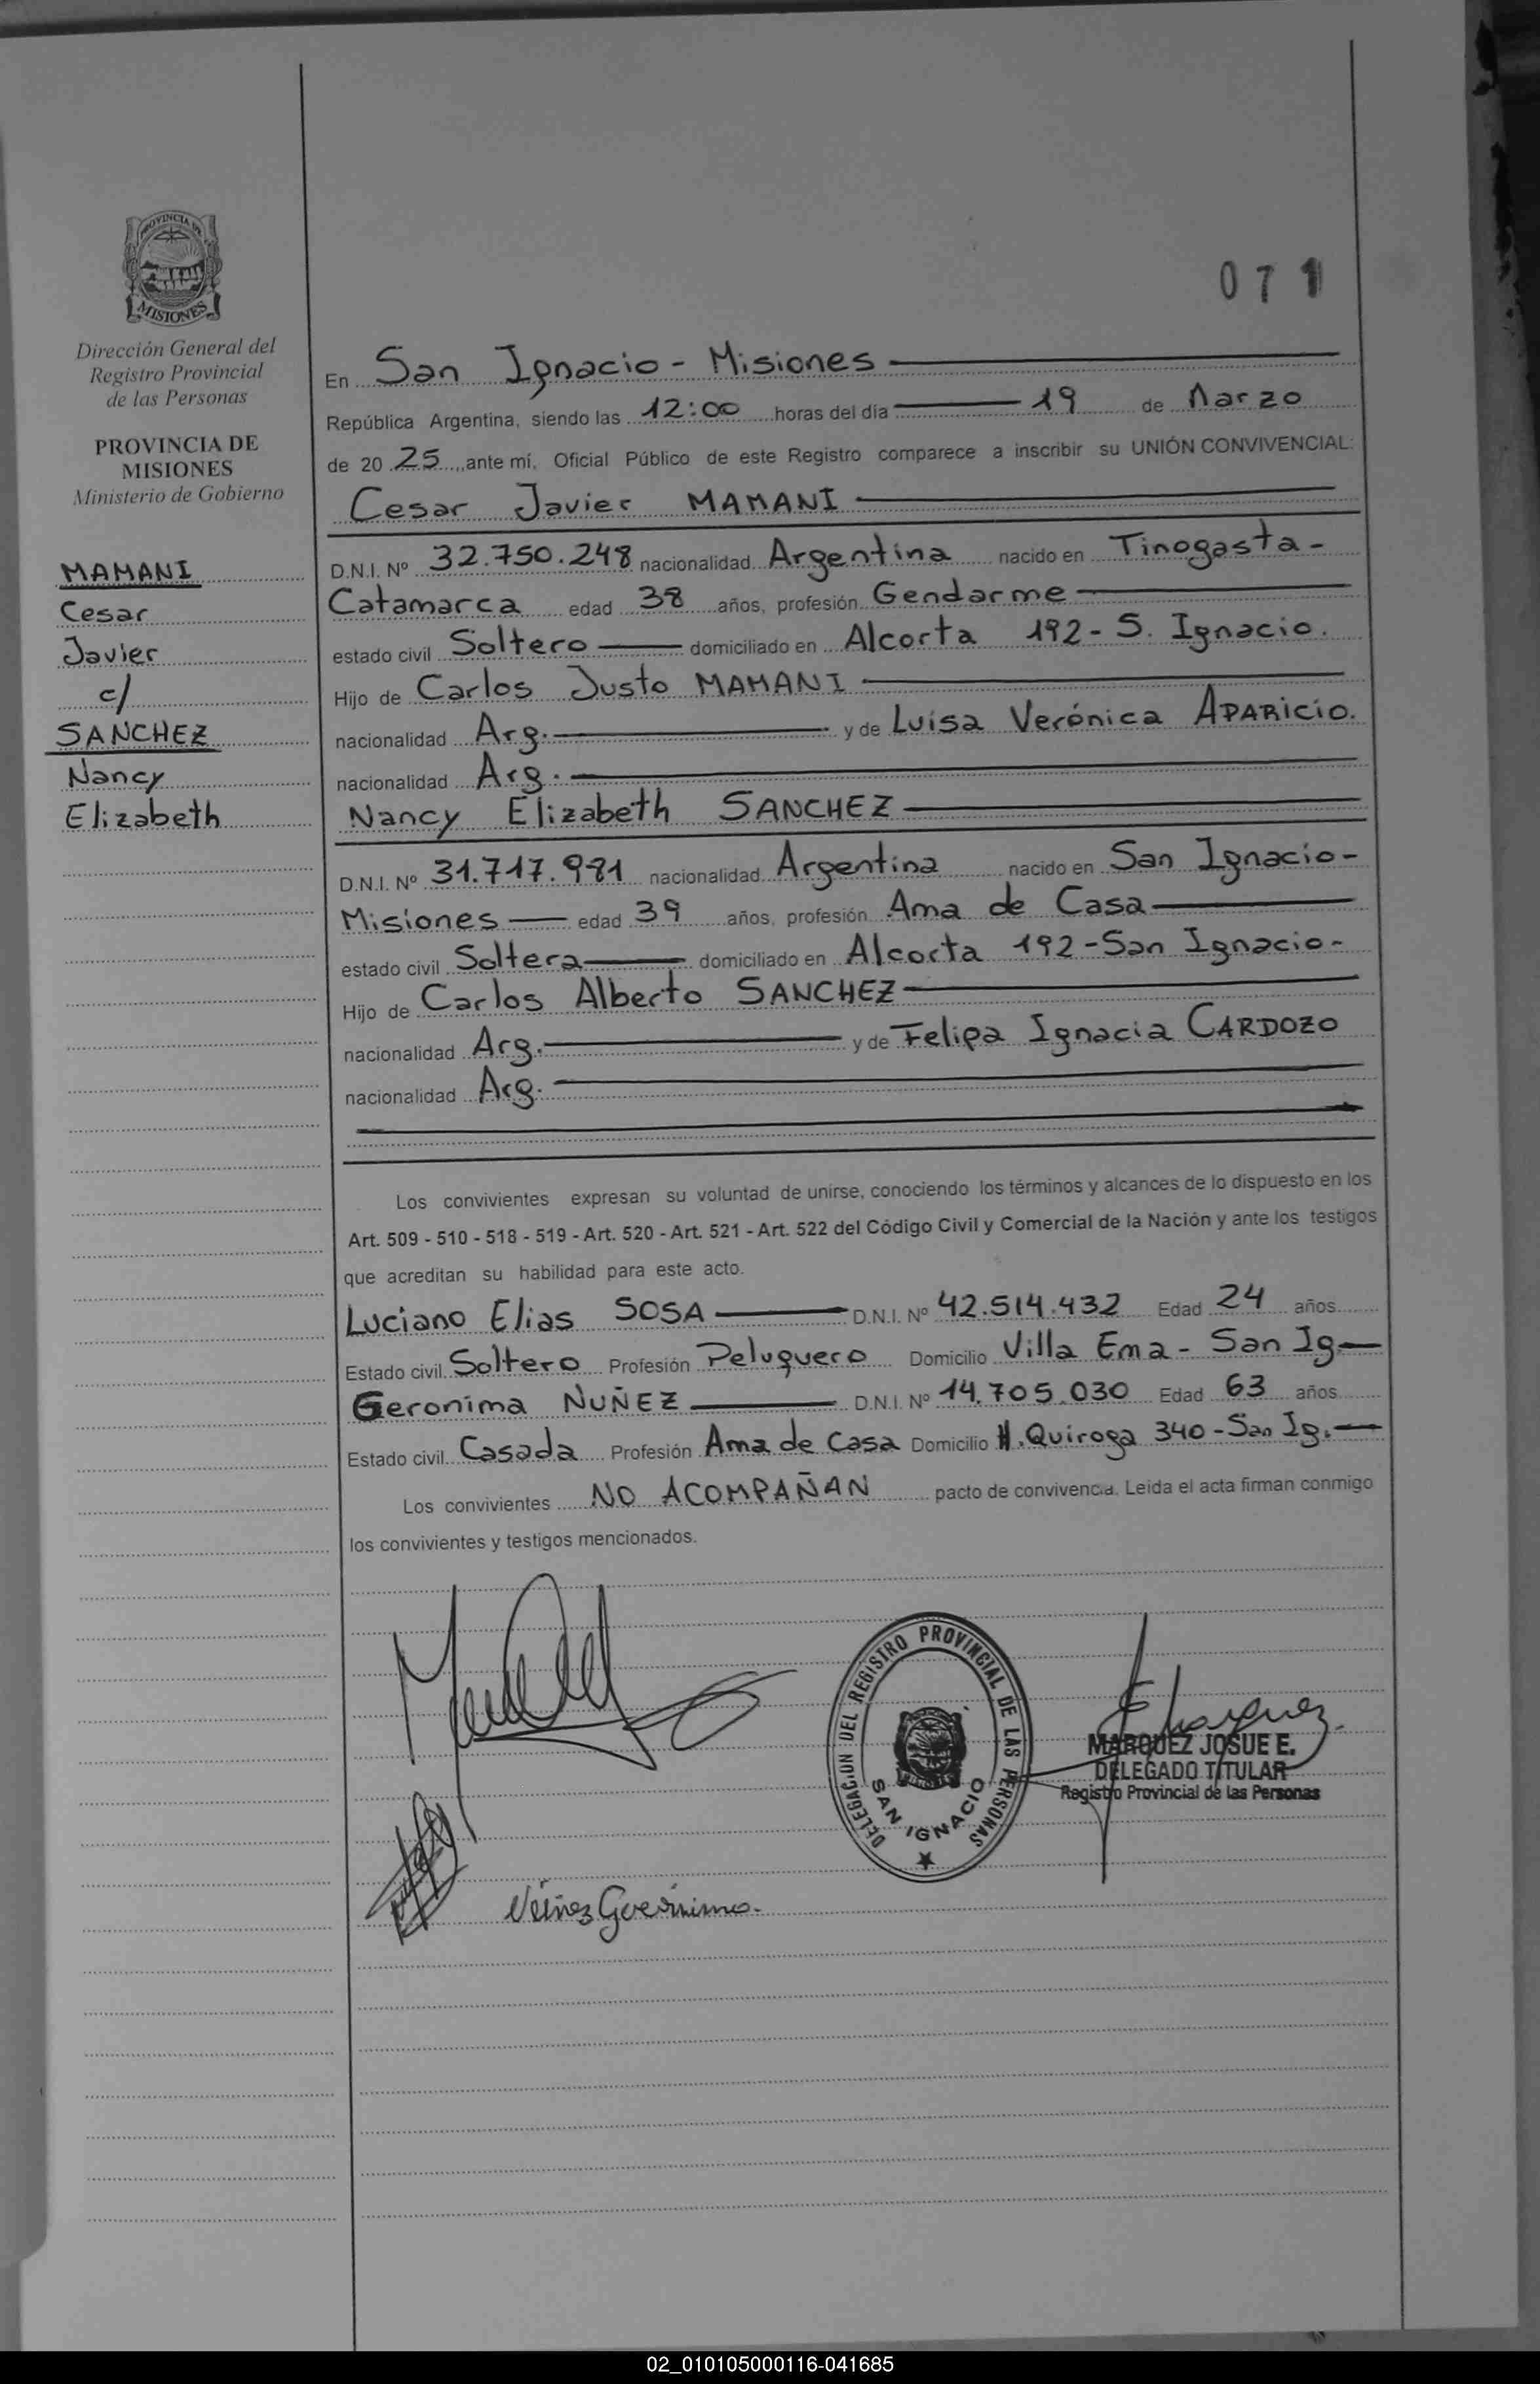 PROVINCIA DE
MISIONES
Dirección General del
Registro Provincial
de las Personas
PROVINCIA DE
MISIONES
Ministerio de Gobierno
MAMANI
Cesar
Javier
c/
SANCHEZ
Nancy
Elizabeth
071
En San Ignacio - Misiones
República Argentina, siendo las 12:00 horas del día 19 de Marzo
de 20 25, ante mí, Oficial Público de este Registro comparece a inscribir su UNIÓN CONVIVENCIAL:
Cesar Javier MAMANI
D.N.I. Nº 32.750.248 nacionalidad Argentina nacido en Tinogasta -
Catamarca edad 38 años, profesión Gendarme
estado civil Soltero domiciliado en Alcorta 192 - S. Ignacio.
Hijo de Carlos Justo MAMANI
nacionalidad Arg. y de Luisa Verónica APARICIO.
nacionalidad Arg.
Nancy Elizabeth SANCHEZ
D.N.I. Nº 31.717.981 nacionalidad Argentina nacido en San Ignacio -
Misiones edad 39 años, profesión Ama de Casa
estado civil Soltera domiciliado en Alcorta 192 - San Ignacio -
Hijo de Carlos Alberto SANCHEZ
nacionalidad Arg. y de Felipa Ignacia CARDOZO
nacionalidad Arg.
Los convivientes expresan su voluntad de unirse, conociendo los términos y alcances de lo dispuesto en los
Art. 509 - 510 - 518 - 519 - Art. 520 - Art. 521 - Art. 522 del Código Civil y Comercial de la Nación y ante los testigos
que acreditan su habilidad para este acto.
Luciano Elias SOSA D.N.I. Nº 42.514.432 Edad 24 años
Estado civil Soltero Profesión Peluquero Domicilio Villa Ema - San Ig
Geronima NUÑEZ D.N.I. Nº 14.705.030 Edad 63 años
Estado civil Casada Profesión Ama de Casa Domicilio H. Quiroga 340 - San Ig.
Los convivientes NO ACOMPAÑAN pacto de convivencia. Leída el acta firman conmigo
los convivientes y testigos mencionados.
DELEGACION DEL REGISTRO PROVINCIAL DE LAS PERSONAS
SAN IGNACIO
MARQUEZ JOSUE E.
DELEGADO TITULAR
Registro Provincial de las Personas
02_010105000116-041685